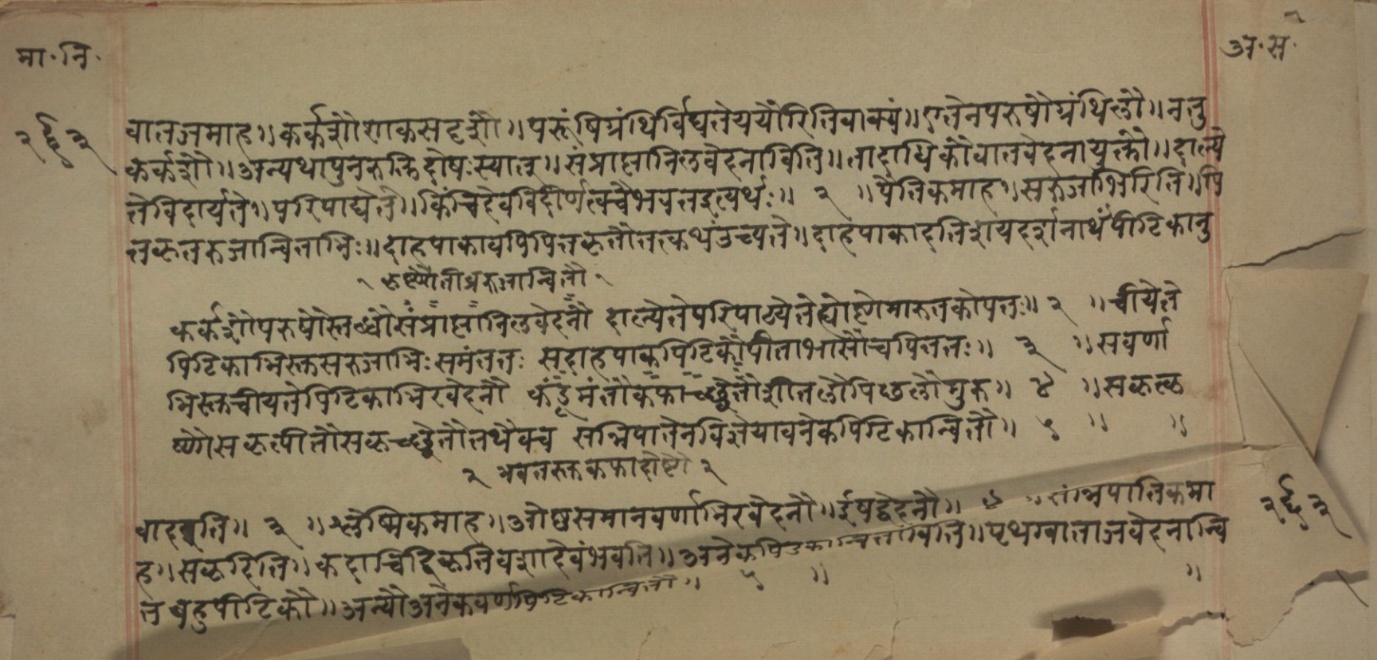 मा॰नि॰
अ॰स॰
२६३
वातजमाह॥ कर्कशौ शाकसदृशौ॥ परूंषिग्रंथिर्विद्यतेययोरितिवाक्यं॥ एतेनपरुषौग्रंथिलौ॥ नतु
कर्कशौ॥ अन्यथापुनरुक्तिदोषःस्यात्॥ संप्राप्तानिलवेदनाविति॥ वातवेदनायुक्तौ॥ दाल्ये
तेविदार्येते॥ परिपाट्येते॥ किंचिदेवविदीर्णत्वचौभवतइत्यर्थः॥ २ ॥ पैतिकमाह॥ सरुजाभिरिति॥ पि
त्तकृतरुजान्विताभिः॥ दाहपाकायपिपित्तकृतौतत्कथंउच्यते॥ दाहपाकादतिशयदर्शनार्थंपीटिकानु
२ कृष्णौतीव्ररुजान्वितौ २
कर्कशौपरुषौस्तब्धौसंप्राप्तानिलवेदनौ दाल्येतेपरिपाट्येतेह्योष्ठौमारुतकोपतः॥ २ ॥ चीयेते
पिटिकाभिस्तुसरुजाभिः समंततः सदाहपाकपिटिकौपीताभासौचपित्ततः॥ ३ ॥ सवर्णा
भिस्तुचीयतेपिटिकाभिरवेदनौ कंडूमंतौकफाच्छूनौशीतलौपिच्छलौगुरू॥ ४ ॥ सकृत्कृ
ष्णौसकृत्पीतौसकृच्छ्वेतौतथैवच सन्निपातेनविज्ञेयावनेकपिटिकान्वितौ॥ ५ ॥ ॥
२ भवतस्तुकफादोष्टौ २
वादवृति॥ ३ ॥ श्लेष्मिकमाह॥ ओष्ठसमानवर्णाभिरवेदनौ॥ ईषद्वेदनौ॥ ४ ॥ सन्निपातिकमा
ह॥ सकृदिति॥ कदाचिद्विकृतिवशादेवंभवति॥ अनेकपिटकान्विताविति॥ पृथग्वाताजवेदनान्वि
तबहुपीटिकौ॥ अन्यौअनेकवर्णपिटिकान्वितौ॥ ५ ॥ ॥
२६३